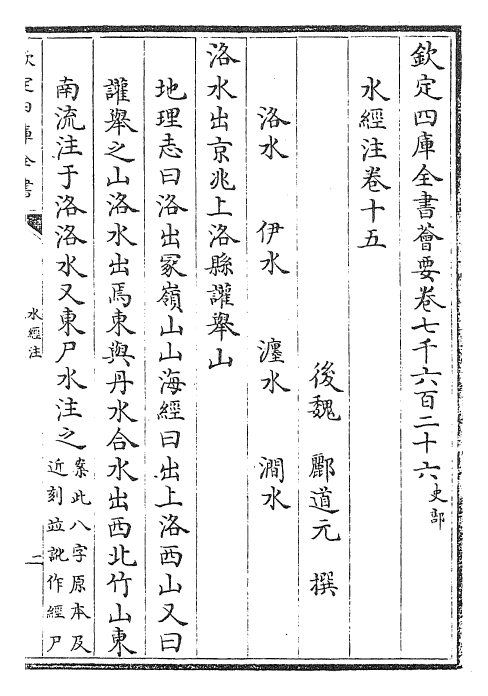 欽定四庫全書薈要卷七千六百二十六史部
水經注卷十五
後魏 酈道元 撰
洛水 伊水 瀍水 澗水
洛水出京兆上洛縣讙舉山
地理志曰洛出冢嶺山山海經曰出上洛西山又曰
讙舉之山洛水出焉東與丹水合水出西北竹山東
南流注于洛洛水又東尸水注之案此八字原本及
近刻並訛作經尸
欽定四庫全書
水經注
一